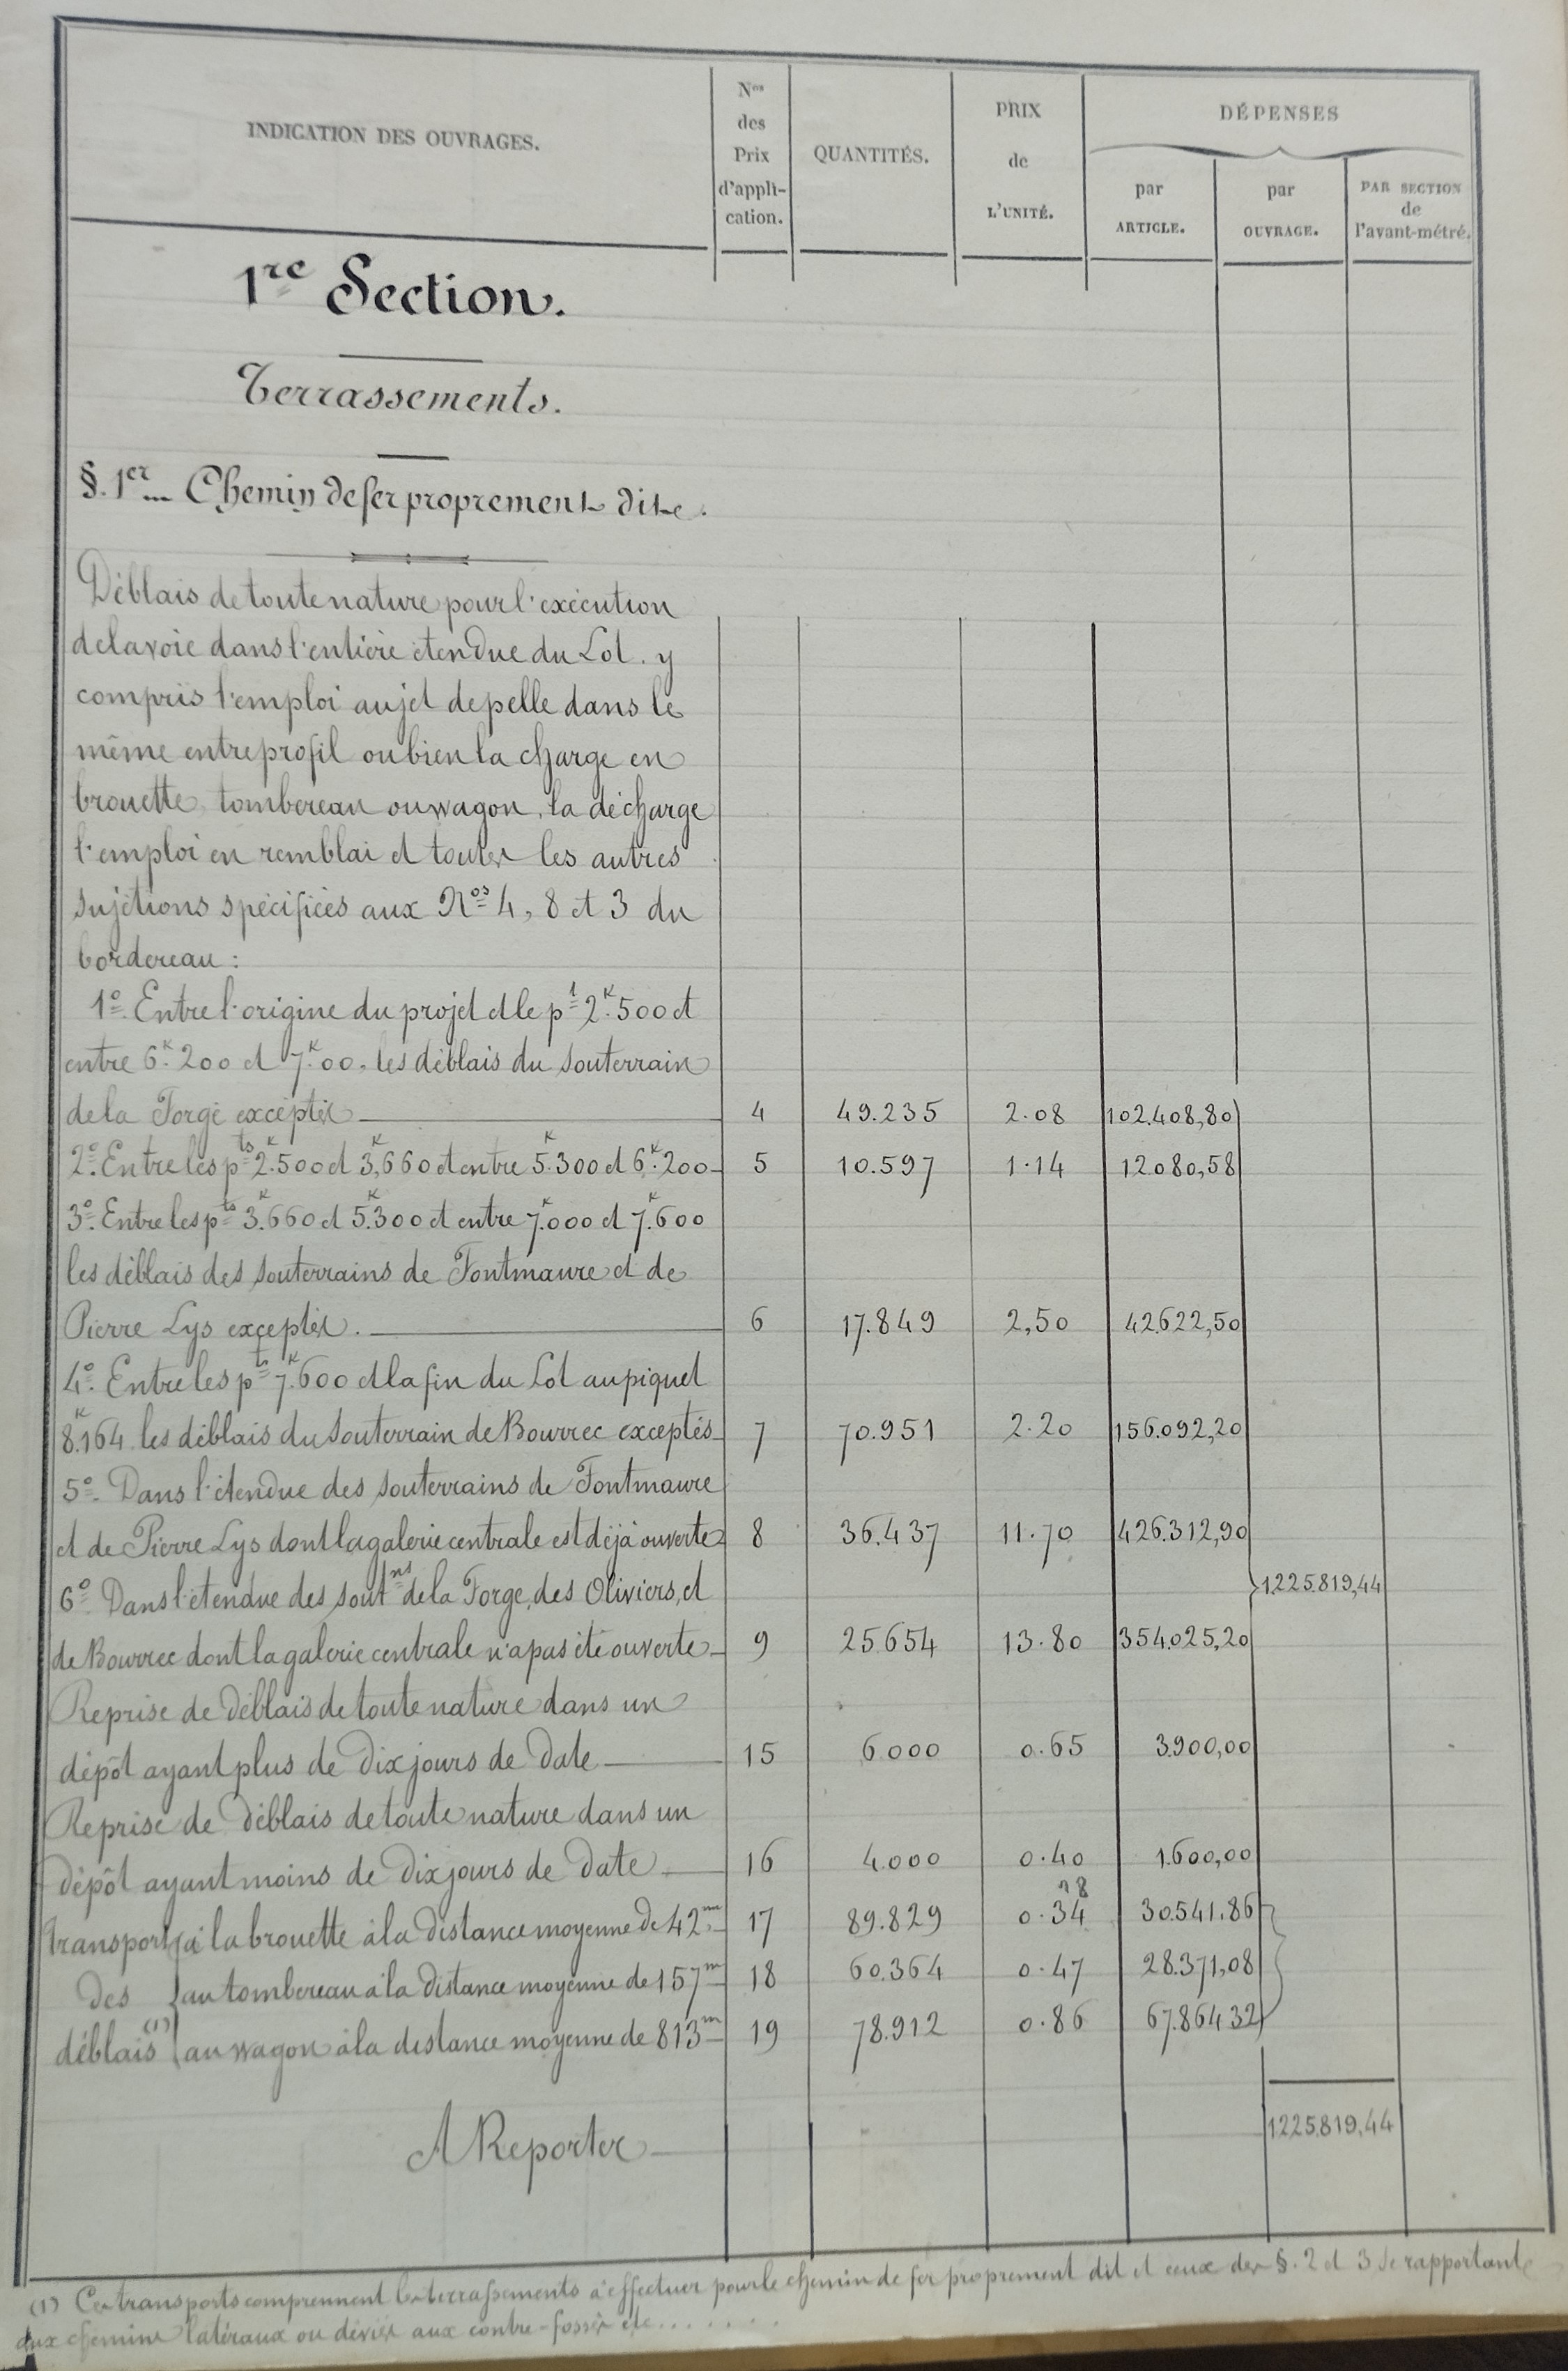 INDICATION DES OUVRAGES.
Nos des Prix d'appli-cation.
QUANTITÉS.
PRIX de L'UNITÉ.
DÉPENSES
par ARTICLE.
par OUVRAGE.
PAR SECTION de l'avant-métré.
1re Section.
Terrassements.
§. 1er Chemin de fer proprement dit.
Déblais de toute nature pour l'exécution
de la voie dans l'entière étendue du Lot. y
compris l'emploi au jet de pelle dans le
même entreprofil ou bien la charge en
brouette, tombereau ou wagon, la décharge
l'emploi en remblai et toutes les autres
sujétions spécifiées aux Nos 4, 8 et 3 du
bordereau :
1° Entre l'origine du projet et le pt 2k.500 et
entre 6k.200 et 7k.00, les déblais du souterrain
de la Forge exceptés 4 49.235 2.08 102.408,80
2° Entre les pts 2k.500 et 3k,660 et entre 5k.300 et 6k.200 5 10.597 1.14 12080,58
3° Entre les pts 3k.660 et 5k.300 et entre 7k.000 et 7k.600
les déblais des souterrains de Fontmaure et de
Pierre Lys exceptés. 6 17.849 2,50 42.622,50
4° Entre les pts 7k.600 et la fin du Lot au piquet
8k.164 les déblais du souterrain de Bourrec exceptés 7 70.951 2.20 156.092,20
5° Dans l'étendue des souterrains de Fontmaure
et de Pierre Lys dont la galerie centrale est déjà ouverte 8 36.437 11.70 426.312,90
6° Dans l'étendue des soutns de la Forge, des Oliviers, et 1.225.819,44
de Bourrec dont la galerie centrale n'a pas été ouverte 9 25.654 13.80 354.025,20
Reprise de déblais de toute nature dans un
dépôt ayant plus de dix jours de date 15 6.000 0.65 3.900,00
Reprise de déblais de toute nature dans un
dépôt ayant moins de dix jours de date 16 4.000 0.40 1.600,00
Transport à la brouette à la distance moyenne de 42m 17 89.829 0.34 30.541.86
des au tombereau à la distance moyenne de 157m 18 60.364 0.47 28.371,08
déblais (1) au wagon à la distance moyenne de 813m 19 78.912 0.86 67.864 32
A Reporter 1225.819,44
(1) Ces transports comprennent les terrassements à effectuer pour le chemin de fer proprement dit et ceux des §. 2 et 3 se rapportant
aux chemins latéraux ou déviés aux contre-fossés etc.......